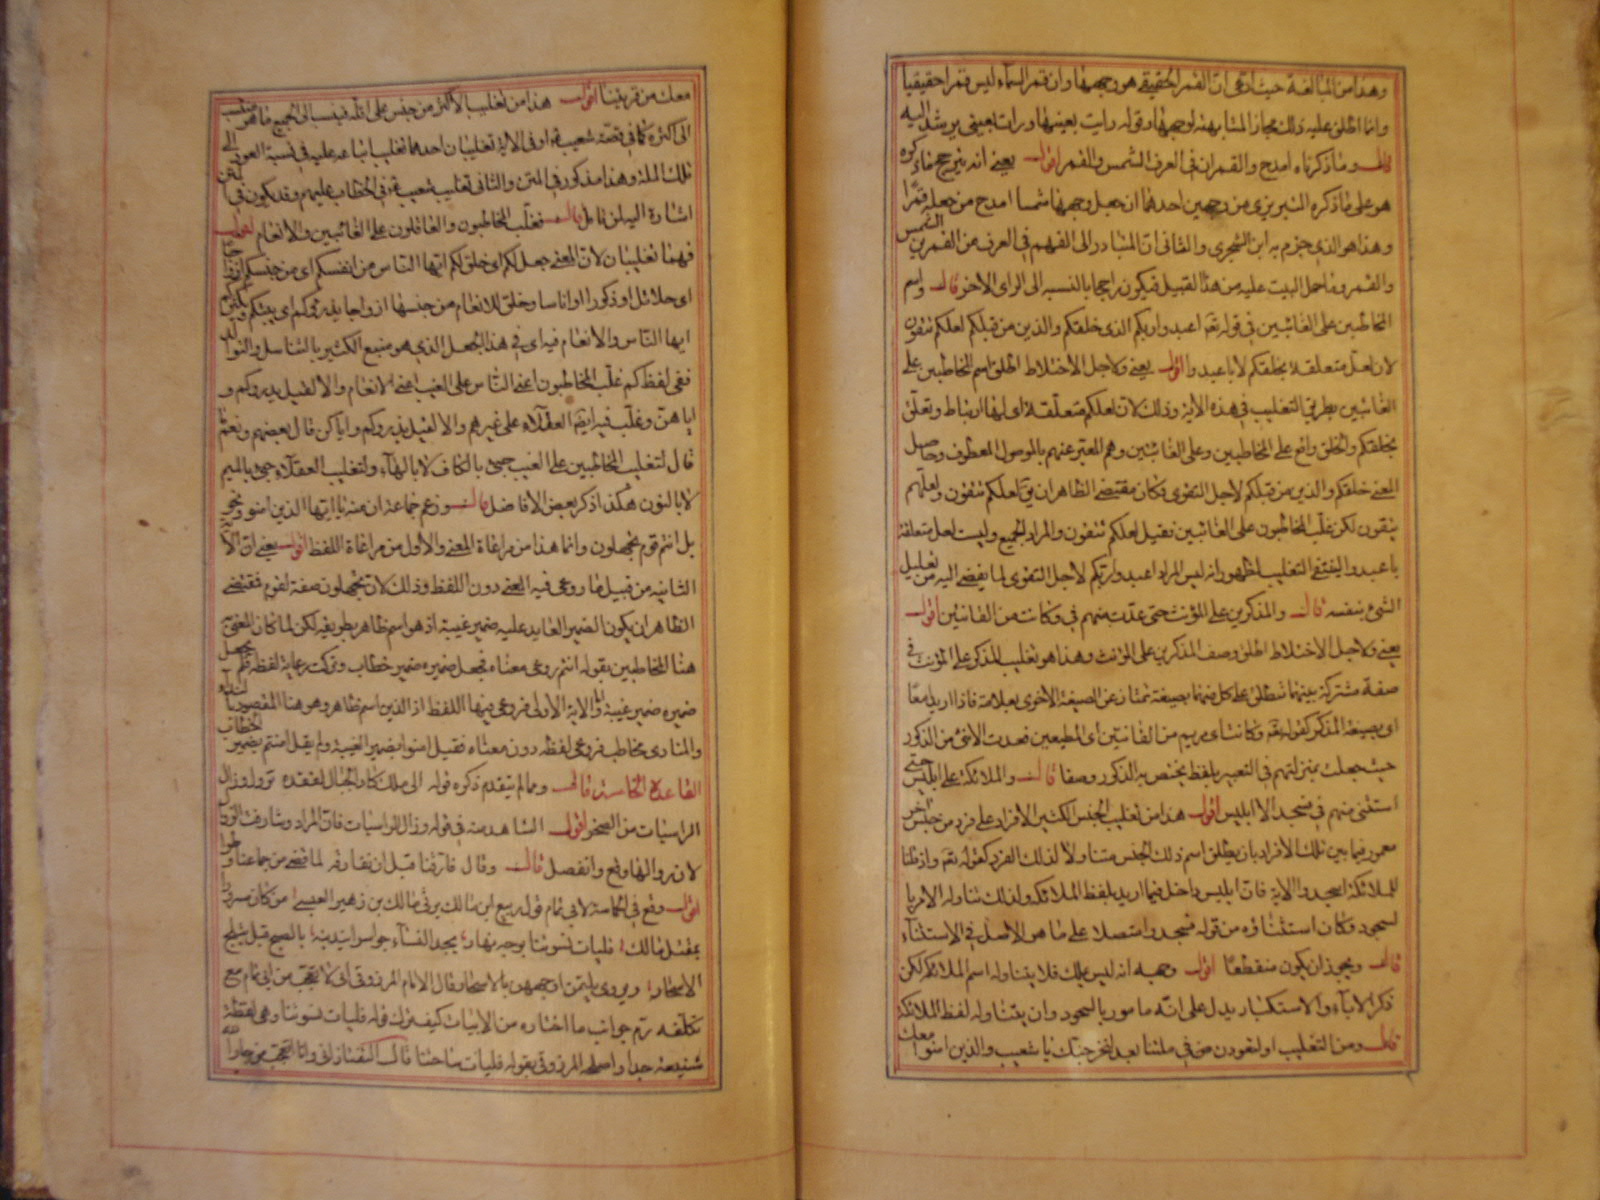 وهذا من المبالغة حيث ادعى ان القمر الحقيقى هو وجهها وان قمر السماء ليس قمرا حقيقيا
وانما اطلق عليه ذلك مجازا لمشابهته لوجهها وقوله رايت بعينها ورات بعينى يرشد اليه
قال وما ذكرناه امدح والقمران فى العرف الشمس والقمر اقول يعنى انه يترجح ما ذكره
هو على ما ذكره التبريزى من وجهين احدهما ان جعل وجهها شمسا امدح من جعله قمرا
وهذا هو الذى جزم به ابن الشجرى والثانى ان المتبادر الى الفهم فى العرف من القمرين الشمس
والقمر وما حمل البيت عليه من هذا القبيل فيكون راجحا بالنسبة الى الراى الاخر قال واسم
المخاطبين على الغائبين فى قوله تعه اعبدوا ربكم الذى خلقكم والذين من قبلكم لعلكم تتقون
لان لعل متعلقة بخلقكم لا باعبدوا اقول يعنى ولاجل الاختلاط اطلق اسم المخاطبين على
الغائبين بطريق التغليب فى هذه الاية وذلك لان لعلكم متعلقة اى لها ارتباط وتعلق
بخلقكم والخلق واقع على المخاطبين وعلى الغائبين وهم المعبر عنهم بالموصول المعطوف وحاصل
المعنى خلقكم والذين من قبلكم لاجل التقوى وكان مقتضى الظاهر ان يق لعلكم تتقون ولعلهم
يتقون لكن غلب المخاطبون على الغائبين فقيل لعلكم تتقون والمراد الجميع وليست لعل متعلقة
باعبدوا لينتفى التغليب لظهور انه ليس المراد اعبدوا ربكم لاجل التقوى لما يفضى اليه من تعليل
الشئ بنفسه قال والمذكرين على المؤنث حتى عدت منهم فى وكانت من القانتين اقول
يعنى ولاجل الاختلاط اطلق وصف المذكرين على المؤنث وهذا هو تغليب المذكر على المؤنث فى
صفة مشتركة بينهما تطلق على كل منهما بصيغة تمتاز عن الصيغة الاخرى بعلامة فاذا اريد معا
اى بصيغة المذكر كقوله تعه وكانت اى مريم من القانتين اى المطيعين فعدت الانثى من الذكور
حيث جعلت بمنزلتهم فى التعبير بلفظ يختص به الذكور وصفا قال والملائكة على ابليس حتى
استثنى منهم فى فسجدوا الا ابليس اقول هذا من تغليب الجنس الكثير الافراد على فرد من جنس اخر
مغمور فيما بين تلك الافراد بان يطلق اسم ذلك الجنس متناولا لذلك الفرد كقوله تعه واذ قلنا
للملائكة اسجدوا الاية فان ابليس داخل فيما اريد بلفظ الملائكة ولذلك تناوله الامر با
لسجود وكان استثناؤه من قوله فسجدوا متصلا على ما هو الاصل فى الاستثناء
قال ويجوز ان يكون منقطعا اقول وجهه انه ليس بملك فلا يتناوله اسم الملائكة لكن
ذكر الاباء والاستكبار يدل على انه مامور بالسجود وان يتناوله لفظ الملائكة
قال ومن التغليب او لتعودن فى ملتنا بعد لنخرجنك يا شعيب والذين امنوا معك
معك من قريتنا اقول هذا من تغليب الاكثر من جنس على اقله فينسب الى الجميع ما هو منتسب
الى اكثره كما فى قصة شعيب وفى الاية تغليبان احدهما تغليب اتباعه عليه فى نسبة العود الى
تلك الملة وهذا مذكور فى المتن والثانى تغليب شعيب فى الخطاب عليهم وقد يكون فى
اشارة اليه لمن تامل قال فغلب المخاطبون والعاقلون على الغائبين والانعام اقول
فههنا تغليبان لان المعنى جعل لكم اى خلق لكم ايها الناس من انفسكم اى من جنسكم ازواجا
اى حلائل او ذكورا واناسا وخلق للانعام من جنسها ازواجا يذروكم اى يبثكم ويكثركم
ايها الناس والانعام فيه اى فى هذا الجعل الذى هو منبع الكثير بالتناسل والتوالد
ففى لفظ كم غلب المخاطبون اعنى الناس على الغيب اعنى الانعام والا لقيل يذروكم و
اياهن وغلب فيه ايضا العقلاء على غيرهم والا لقيل يذروكم واياكن قال بعضهم
قال لتغليب المخاطبين على الغيب جئ بالكاف لا بالهاء ولتغليب العقلاء جئ بالميم
لا بالنون هكذا ذكر بعض الافاضل قال وزعم جماعة ان منه يا ايها الذين امنوا ونحو
بل انتم قوم تجهلون وانما هذا من مراعاة المعنى والاول من مراعاة اللفظ اقول يعنى ان الاية
الثانية من قبيل ما روعى فيه المعنى دون اللفظ وذلك لان تجهلون صفة لقوم فمقتضى
الظاهر ان يكون الضمير العايد عليه ضمير غيبة اذ هو اسم ظاهر بطريقه لكن لما كان المعنى
هنا المخاطبين بقوله انتم روعى معناه فجعل ضميره ضمير خطاب وتركت رعاية لفظه فلم يجعل
ضميره ضمير غيبة واما الاية الاولى فروعى فيها اللفظ اذ الذين اسم ظاهر وهو هنا المقصود
والمنادى مخاطب فروعى لفظه دون معناه فقيل امنوا بضمير الغيبة ولم يقل امنتم بضمير الخطاب
القاعدة الخامسة قال ومما لم يتقدم ذكره قوله الى ملك كاد الجبال لفقده تزول وزال
الراسيات من الصخر اقول الشاهد منه فى قوله وزال الراسيات فان المراد وشارفت الزوال
لان زوالها وقع وانفصل قال وقال فارقنا قبل ان نفارقه لما قضى من جماعنا وطرا
اقول وقع فى الحماسة لابى تمام قول ربيع ابن مالك يرثى مالك بن زهير العبسى من كان مسرورا
بمقتل مالك فليات نسوتنا بوجه نهار يجد النساء حواسرا يندبنه بالصبح قبل تبلج
الاسحار ويروى يلطمن اوجههن بالاسحار قال الامام المرزوقى انى لا تعجب من ابى تمام مع
تكلفه رم جوانب ما اختاره من الابيات كيف ترك قوله فليات نسوتنا وهى لفظة
شنيعة جدا واصلحه المرزوقى بقوله فليات ساحتنا قال التفتازانى وانا اتعجب من جار الله